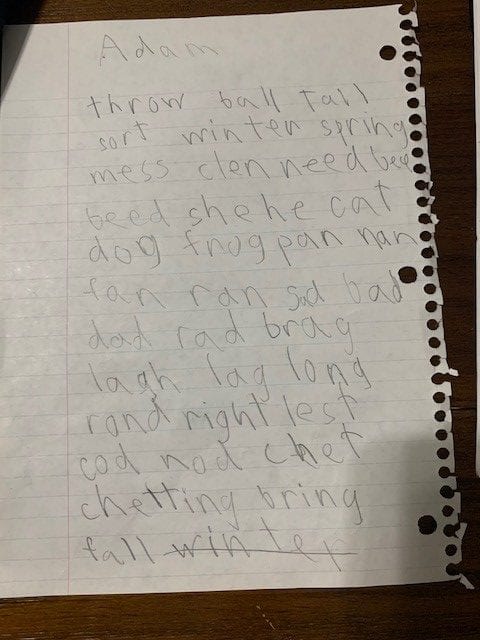 Adam
throw ball tall
sort winter spring
mess clen need bee
beed she he cat
dog frog pan nan
fan ran sad bad
dad rad brag
lagh lag long
rond right lest
cod nod chet
chetting bring
fall winter